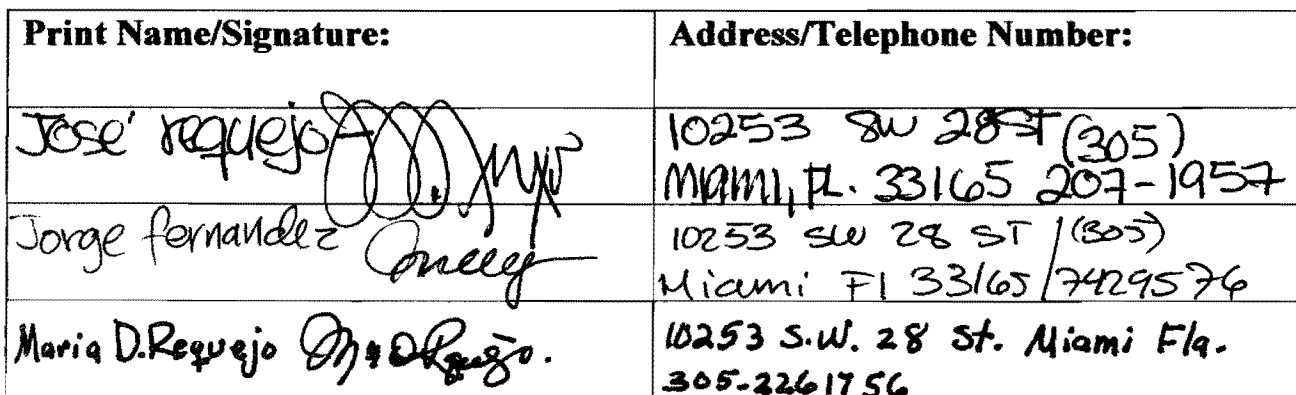 Print Name/Signature: Address/Telephone Number:
José requejo 10253 SW 28 ST (305)
Miami, FL. 33165 207-1957
Jorge fernandez 10253 SW 28 ST / (305)
Miami Fl 33165 / 7429576
Maria D. Requejo Ma D Requejo. 10253 S.W. 28 St. Miami Fla.
305-2261756